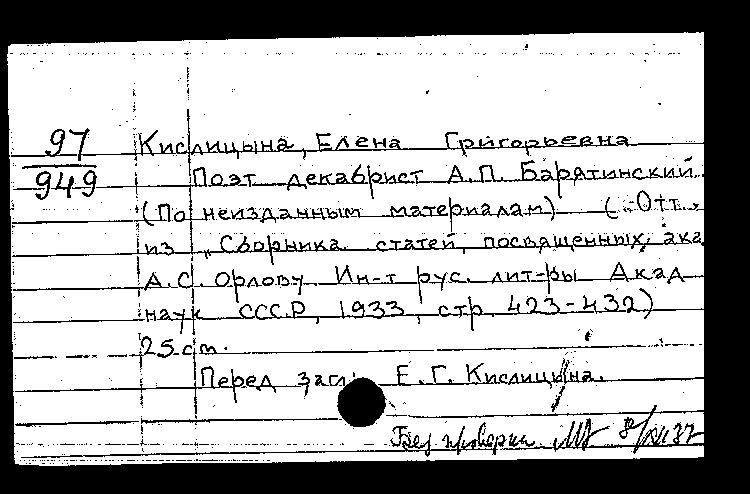 97
949
Кислицына, Елена Григорьевна
Поэт декабрист А.П. Барятинский.
(По неизданным материалам) (Отт.
из „Сборника статей, посвященных ака
А.С. Орлову. Ин-т рус. лит-ры Акад
наук СССР, 1933, стр. 423-432)
25 cm.
Перед загл: Е.Г. Кислицына.
Без проверки